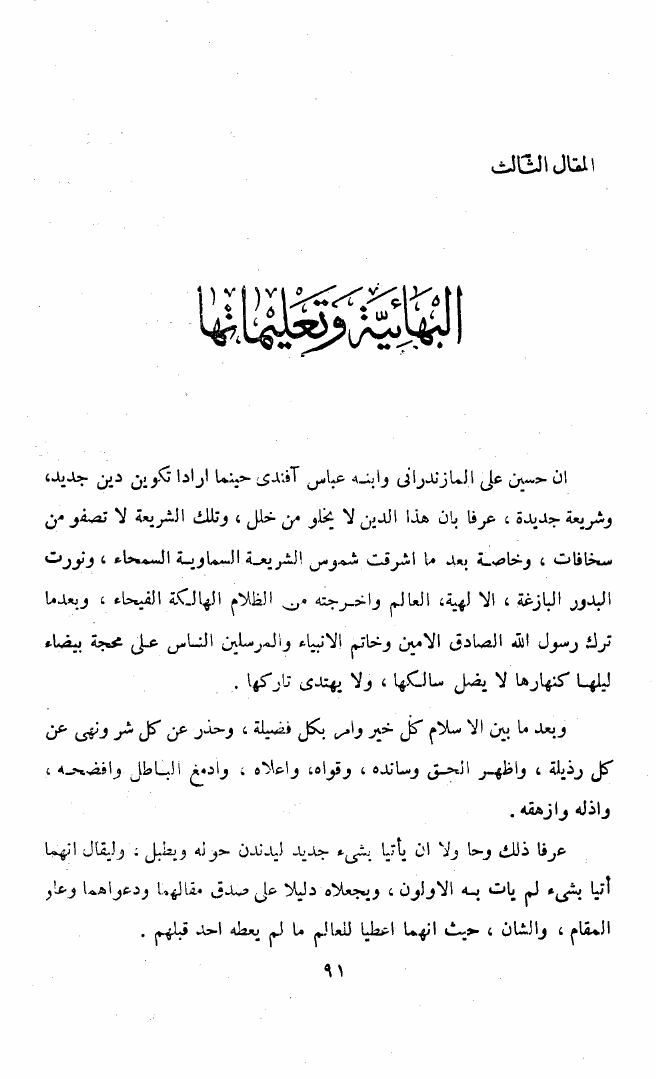 المقال الثالث
البهائية وتعليماتها
ان حسين على المازندرانى وابنه عباس آفندى حينما ارادا تكوين دين جديد،
وشريعة جديدة ، عرفا بان هذا الدين لا يخلو من خلل ، وتلك الشريعة لا تصفو من
سخافات ، وخاصة بعد ما اشرقت شموس الشريعة السماوية السمحاء ، ونورت
البدور البازغة ، الا لهية، العالم واخرجته من الظلام الهالكة الفيحاء ، وبعدما
ترك رسول الله الصادق الامين وخاتم الانبياء والمرسلين الناس على محجة بيضاء
ليلها كنهارها لا يضل سالكها ، ولا يهتدى تاركها .
وبعد ما بين الا سلام كل خير وامر بكل فضيلة ، وحذر عن كل شر ونهى عن
كل رذيلة ، واظهر الحق وسانده ، وقواه، واعلاه ، وادمغ الباطل وافضحه ،
واذله وازهقه .
عرفا ذلك وحا ولا ان يأتيا بشىء جديد ليدندن حوله ويطبل ، وليقال انهما
أتيا بشىء لم يات به الاولون ، ويجعلاه دليلا على صدق مقالهما ودعواهما وعلو
المقام ، والشان ، حيث انهما اعطيا للعالم ما لم يعطه احد قبلهم .
٩١